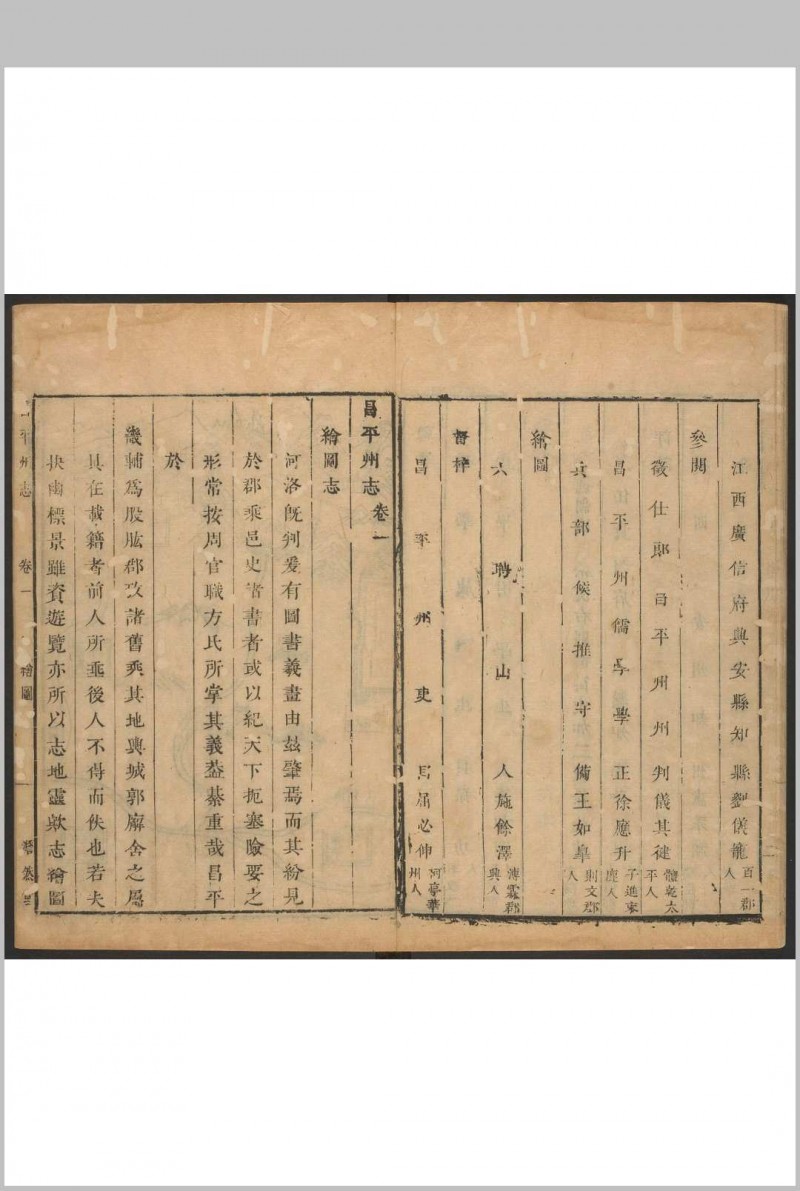 江西廣信府興安縣知縣劉儀龍百一郡人
參閱
徵仕郎昌平州州判儀其徤體乾太平人
昌平州儒學學正徐應升子進東鹿人
兵部候推守備王如臯則文郡人
繪圖
人聘山人施餘澤溥霖郡興人
督梓
昌平州吏馬屈必伸州人
昌平州志卷一
繪圖志
河洛旣判爰有圖書義畫由茲肇焉而其紛見
於郡乘邑史諸書者或以紀天下扼塞險要之
形常按周官職方氏所掌其義葢綦重哉昌平
於
畿輔爲股肱郡攷諸舊乘其地輿城郭廨舍之屬
具在載籍者前人所垂後人不得而佚也若夫
抉幽標景雖資遊覽亦所以志地靈歟志繪圖
昌平州志 卷一 繪圖